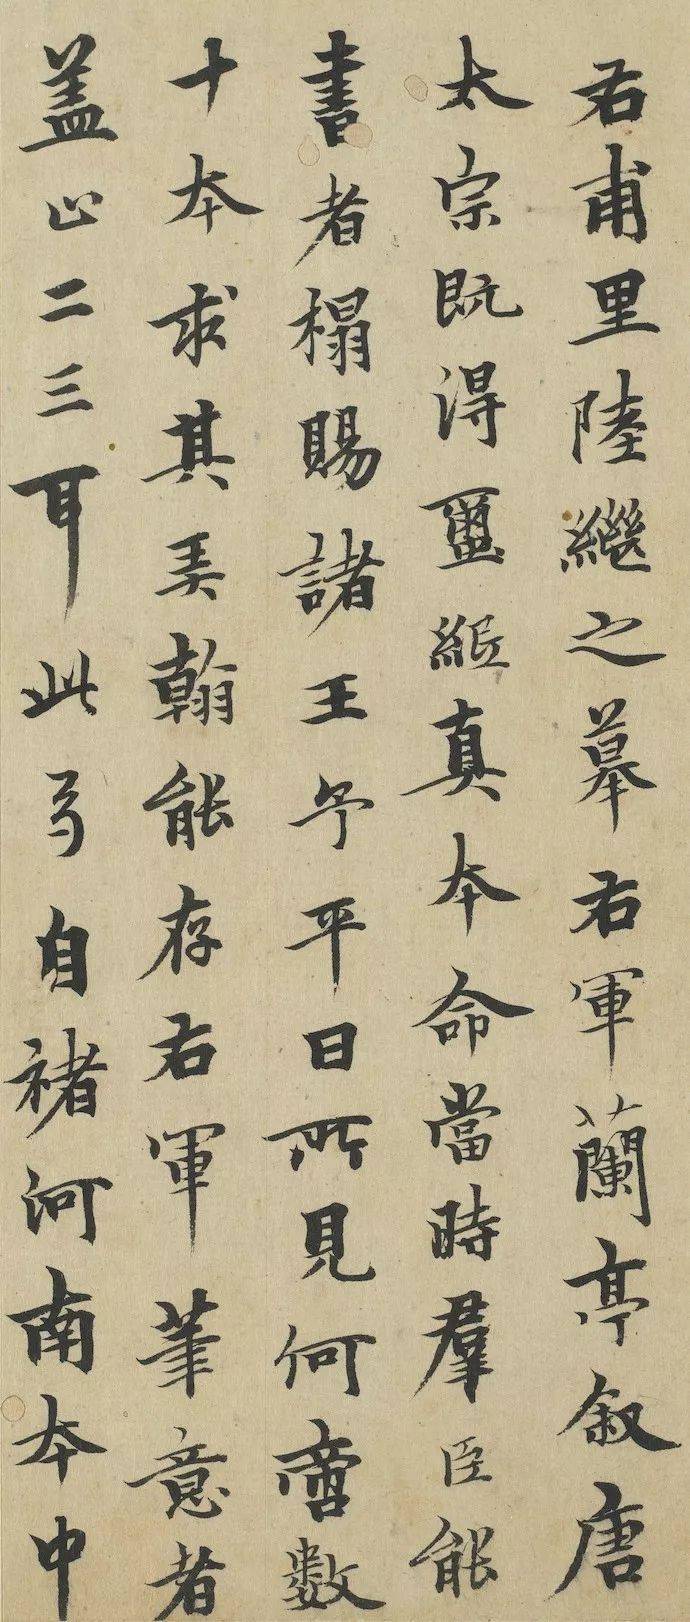 右甫里陸繼之摹右軍蘭亭叙唐
太宗既得璽紙真本命當時羣臣能
書者搨賜諸王予平日所見何啻數
十本求其弄翰能存右軍筆意者
葢止二三耳此乃自褚河南本中